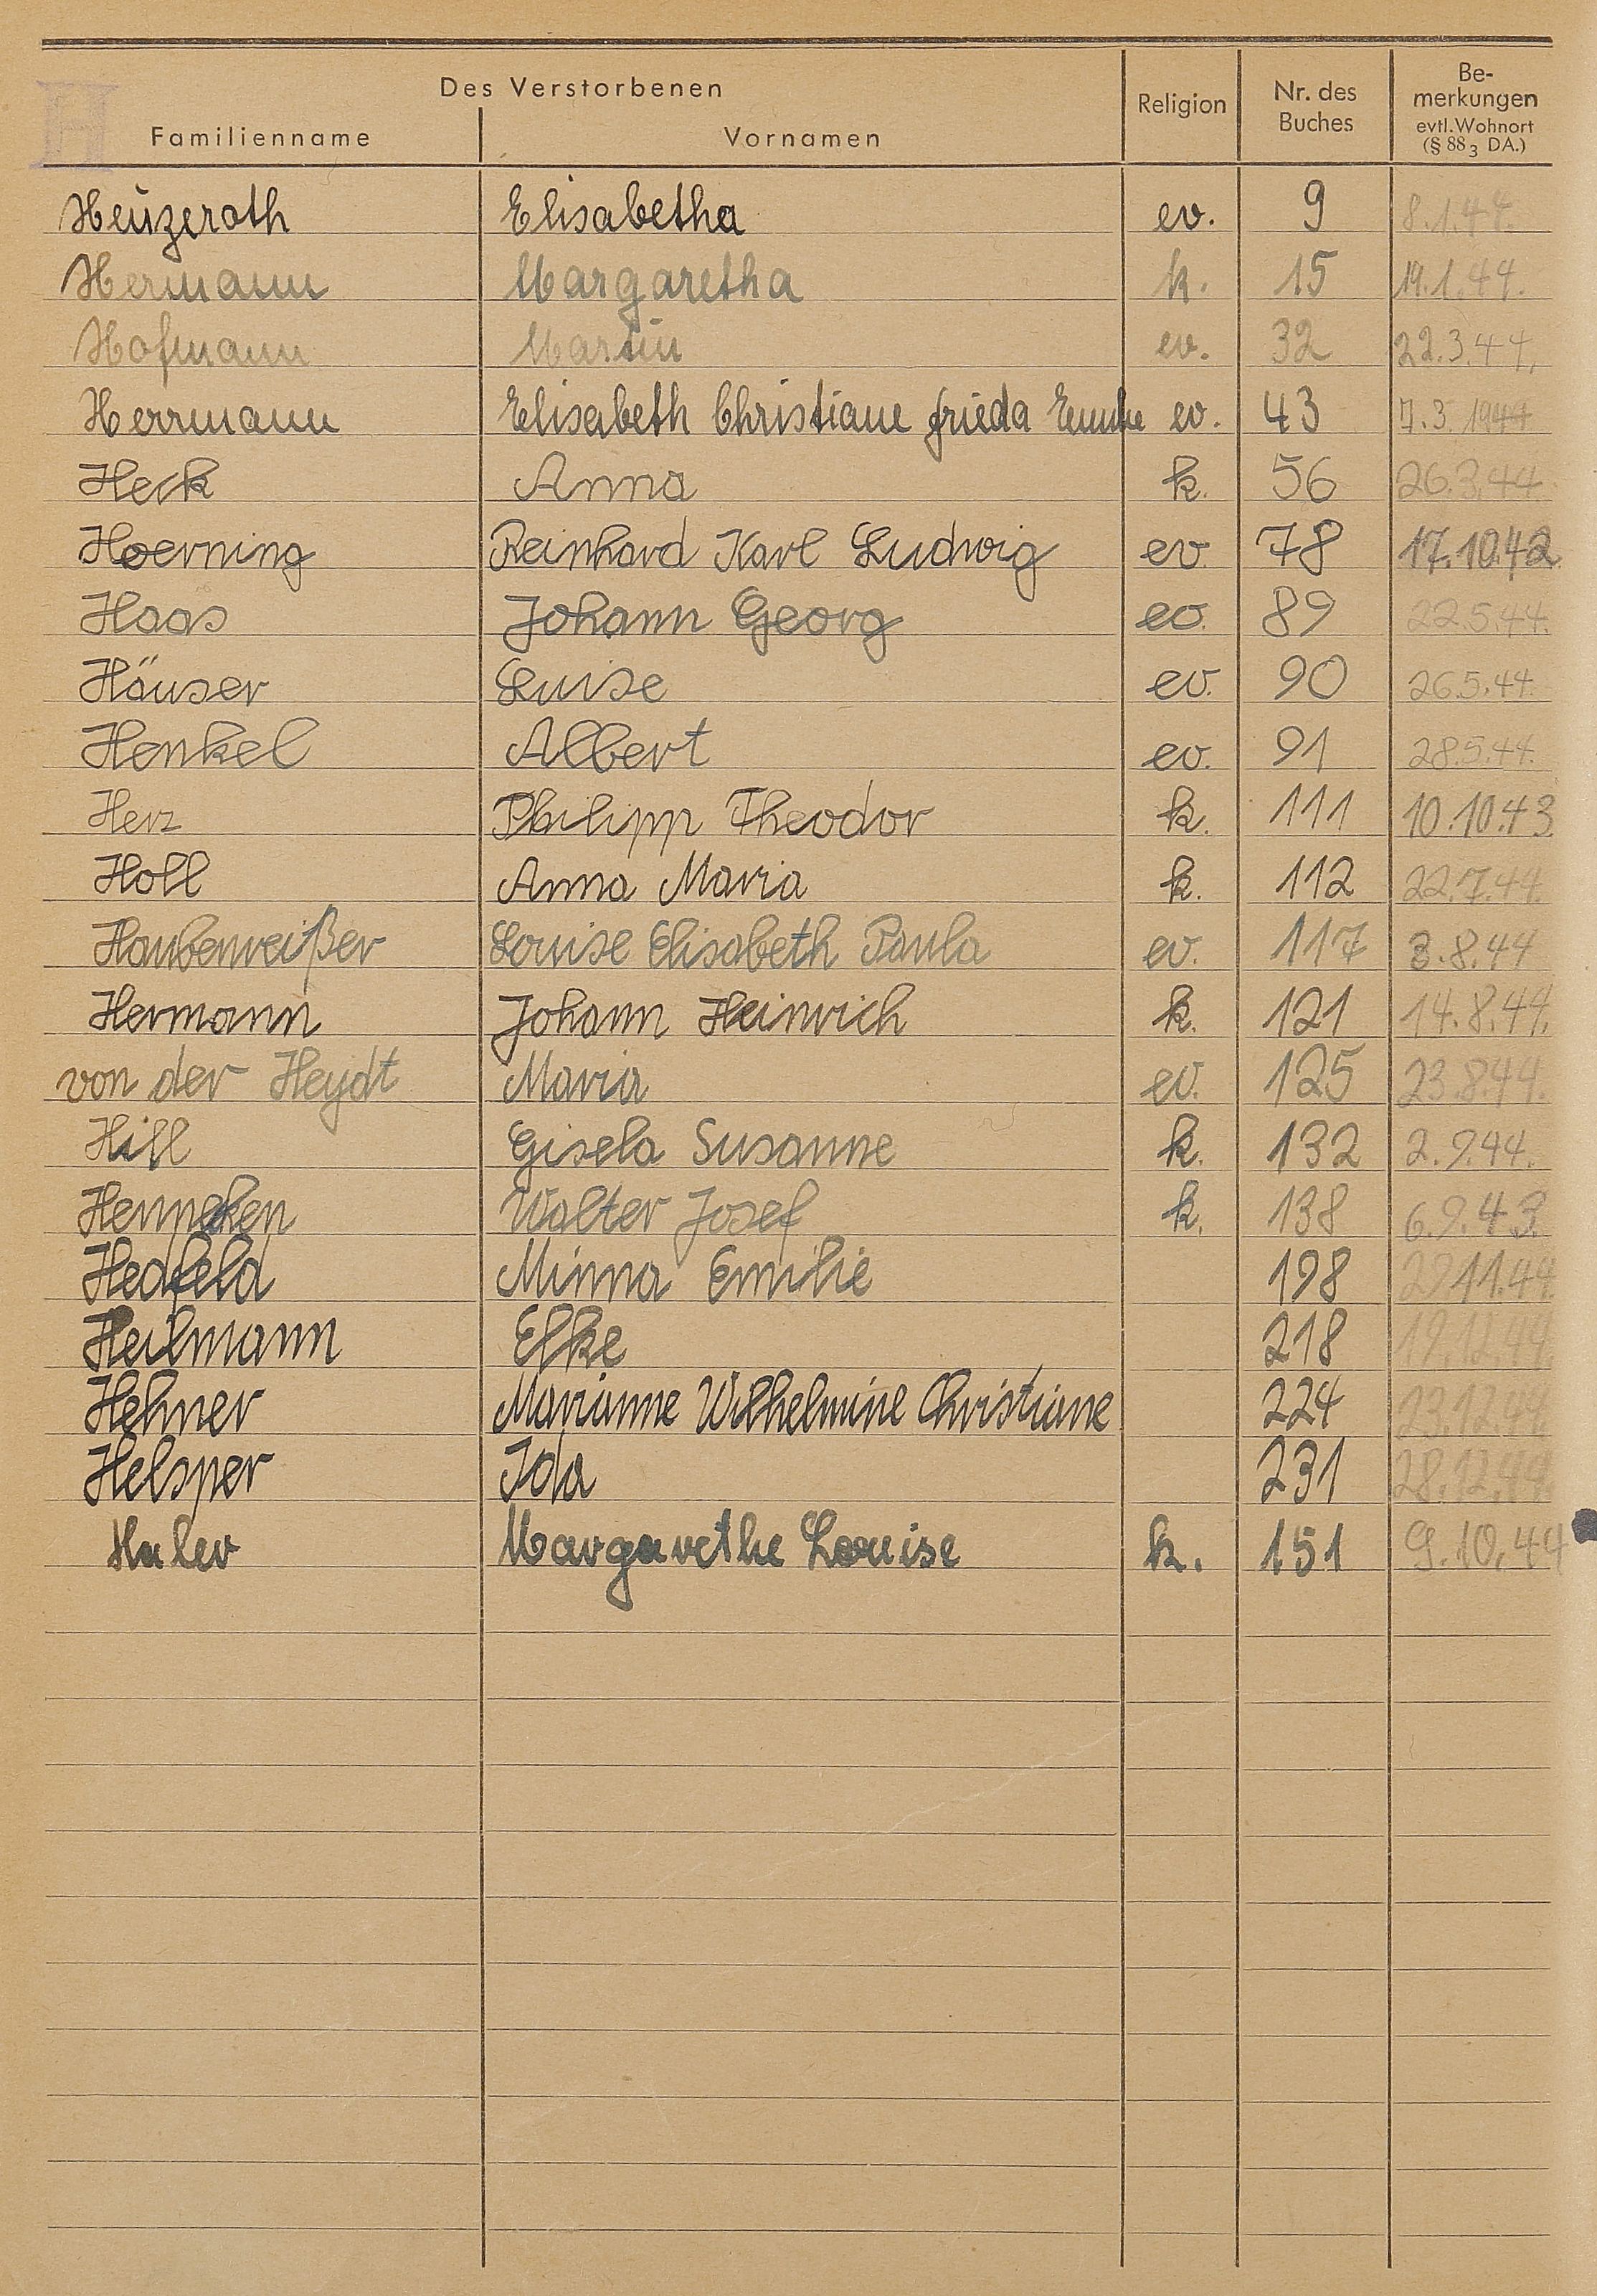 H
Des Verstorbenen
Familienname Vornamen Religion Nr. des Buches Be-merkungen evtl. Wohnort (§ 88 3 DA.)
Heuzeroth Elisabetha ev. 9 8.1.44.
Hermann Margaretha k. 15 19.1.44.
Hofmann Martin ev. 32 22.3.44.
Herrmann Elisabeth Christiane Frieda ev. 43 7.3.1944
Heck Anna k. 56 26.3.44.
Hoerning Reinhard Karl Ludwig ev 78 17.10.42
Haas Johann Georg ev. 89 22.5.44.
Häuser Luise ev. 90 26.5.44.
Henkel Albert ev. 91 28.5.44.
Herz Philipp Theodor k. 111 10.10.43
Holl Anna Maria k. 112 22.7.44.
Haubenreißer Louise Elisabeth Paula ev. 117 3.8.44
Hermann Johann Heinrich k. 121 14.8.44.
von der Heydt Maria ev. 125 23.8.44.
Hill Gisela Susanne k. 132 2.9.44.
Henneken Walter Josef k. 138 6.9.43.
Hedfeld Minna Emilie 198 29.11.44.
Heilmann Elke 218 19.12.44.
Hehner Marianne Wilhelmine Christiane 224 23.12.44.
Helsper Ida 231 28.12.44.
Haler Margarethe Louise k. 151 9.10.44